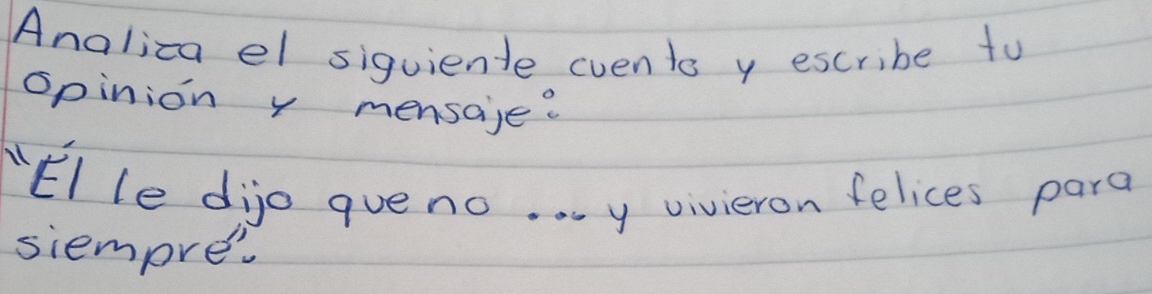 Analiza el siguiente cuento y escribe tu
opinión y mensaje:
"Él le dijo que no ... y vivieron felices para
siempre".